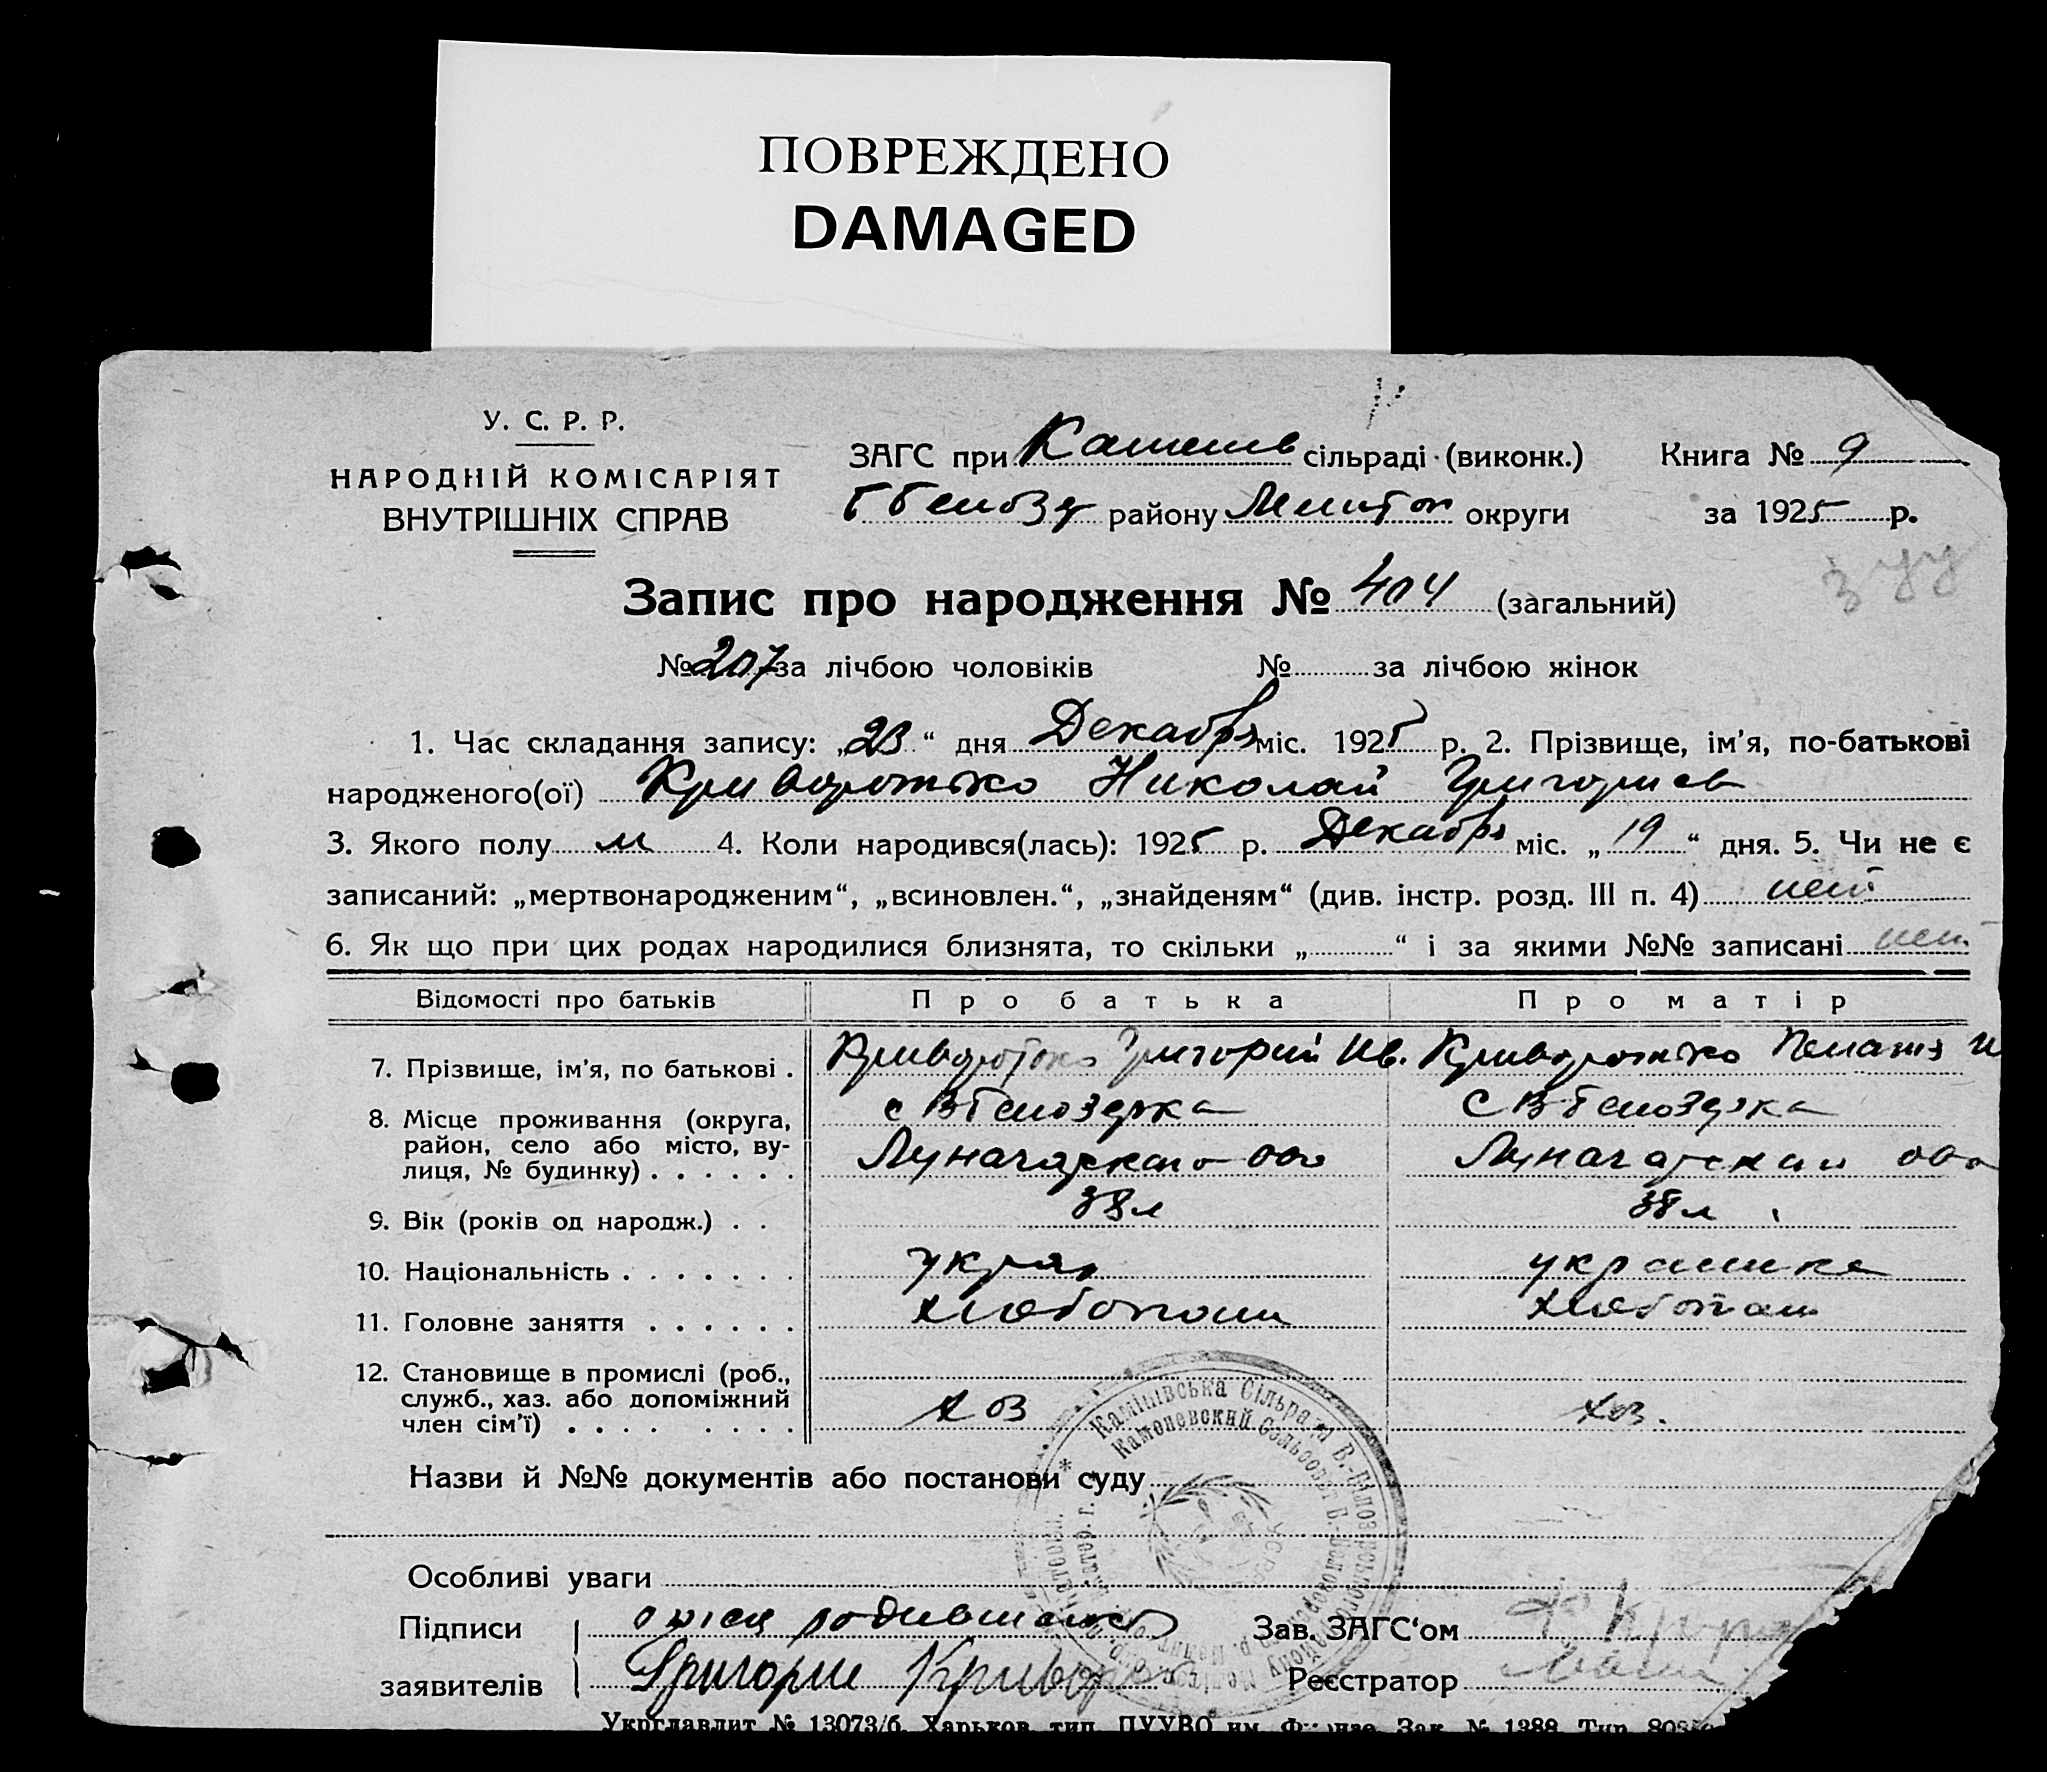 ПОВРЕЖДЕНО
DAMAGED
У. С. Р. Р.
НАРОДНІЙ КОМІСАРІЯТ
ВНУТРІШНІХ СПРАВ
ЗАГС при Каменев сільраді (виконк.) Книга № 9
району Мелитоп округи за 1925 р.
Запис про народження № 404 (загальний)
№ 207 за лічбою чоловіків № за лічбою жінок
1. Час складання запису: „23“ дня Декабря міс. 1925 р. 2. Прізвище, ім'я, по-батькові
народженого(ої) Криворотько Николай Григориев
3. Якого полу м 4. Коли народився(лась): 1925 р. Декабря міс. „19“ дня. 5. Чи не є
записаний: „мертвонародженим“, „всиновлен.“, „знайденям“ (див. інстр. розд. III п. 4) нет
6. Як що при цих родах народилися близнята, то скільки „ “ і за якими №№ записані нет
Відомості про батьків Про батька Про матір
7. Прізвище, ім'я, по батькові . Криворотько Григорий Ив. Криворотько И
8. Місце проживання (округа, с Вбелозерка с Вбелозерка
район, село або місто, ву-
лиця, № будинку) . . . . . .
9. Вік (років од народж.) . . 38л 38л
10. Національність . . . . . . . украинка
11. Головне заняття . . . . . . хлебопаш хлебопаш
12. Становище в промислі (роб.,
служб., хаз. або допоміжний
член сім'ї) . . . . . . . . хоз хоз.
Камінівська Сільрада В.-Білозерського району
Каменевский Сельсовет В.-Белозерск
УСРР
Назви й №№ документів або постанови суду
Особливі уваги
Підписи отец родившагось Зав. ЗАГС'ом
заявителів Григорие Криворот Реєстратор
Укрглавлит № 13073/б. Харьков, тип. ПУУВО им. Фрунзе. Зак. № 1388. Тир.